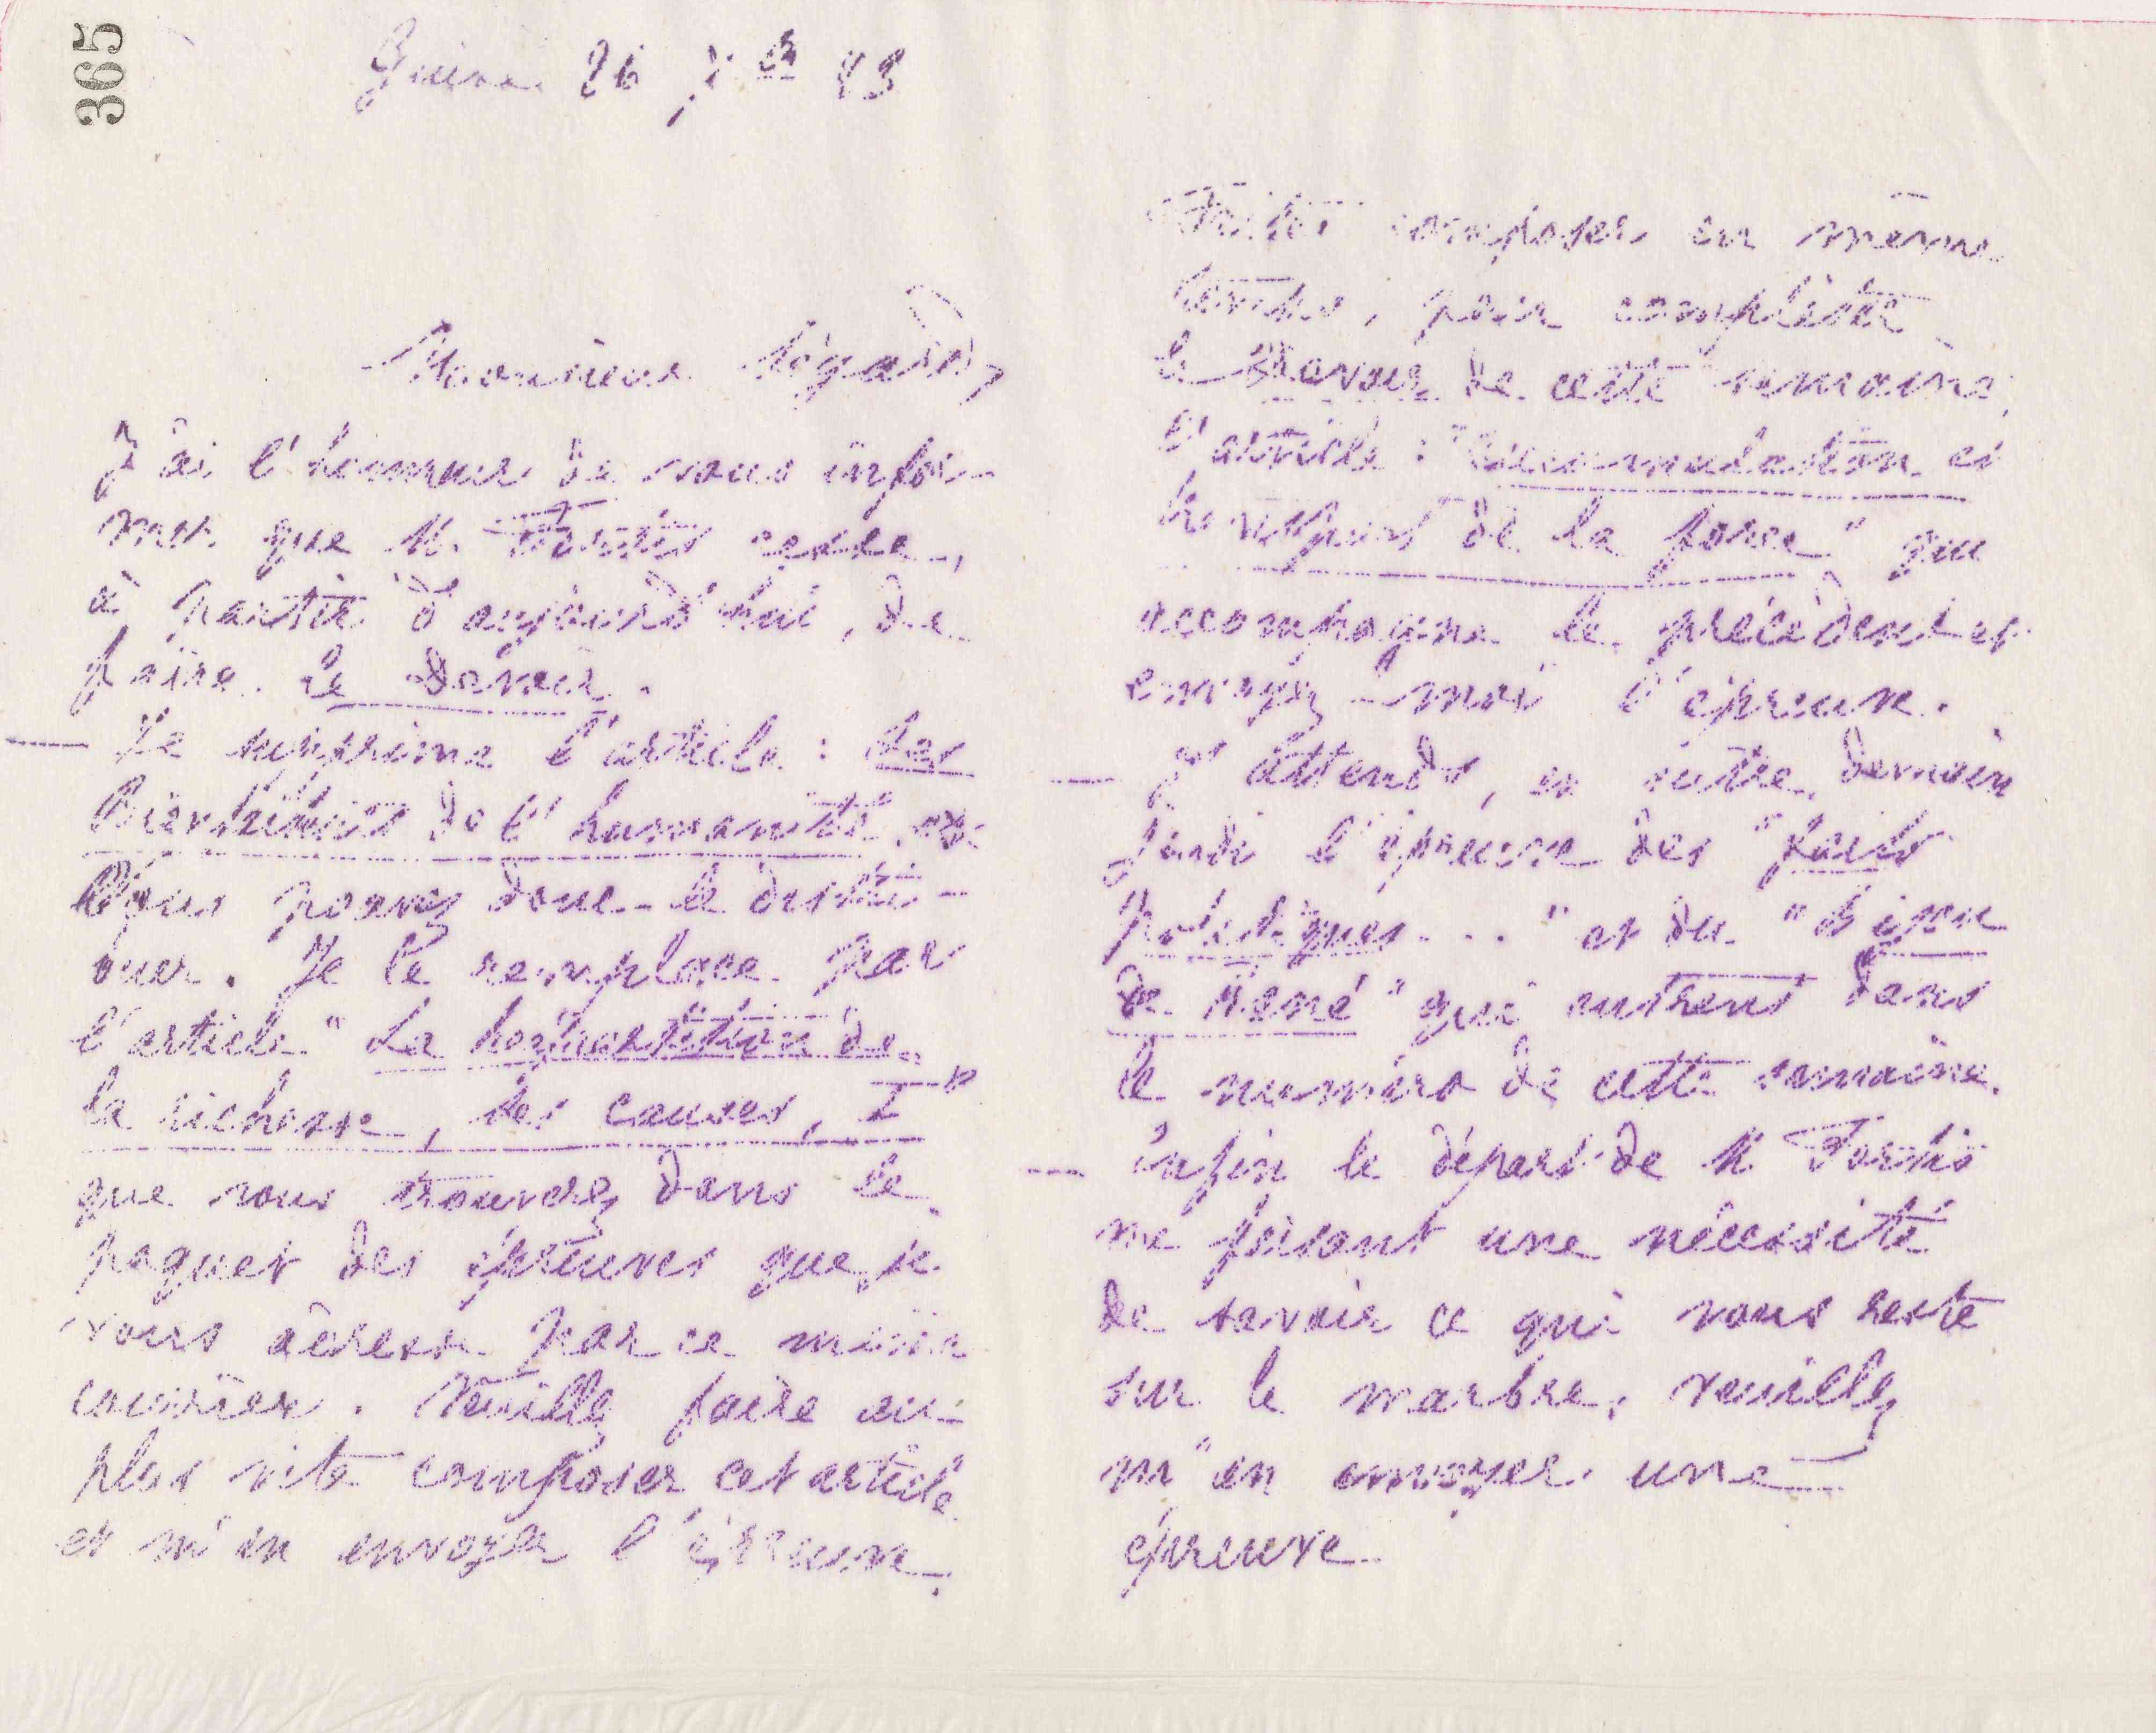 365
Guise 26 7bre 83
Monsieur Légaré,
J'ai l'honneur de vous infor-
mer que M. cesse,
à partir d'aujourd'hui, de
faire le Devoir.
— Je supprime l'article : Les
bienfaiteurs de l'humanité,
Vous pouvez donc le distri-
buer. Je le remplace par
l'article "La répartition de
la richesse, ses causes, I"
que vous trouverez dans le
paquet des épreuves que je
vous adresse par ce même
courrier. Veuillez faire au
plus vite composer cet article
et m'en envoyer l'épreuve.
Faites composer en même
temps, pour compléter
le Devoir de cette semaine,
l'article : "Accumulation et
de la force" qui
accompagne le précédent et
envoyez-moi l'épreuve.
— J'attends, en outre, demain
jeudi l'épreuve des "faits
politiques..." et du "Signe
de René" qui entrent dans
le numéro de cette semaine.
— Enfin le départ de M
me faisant une nécessité
de savoir ce qui vous reste
sur le marbre, veuillez
m'en envoyer une
épreuve.